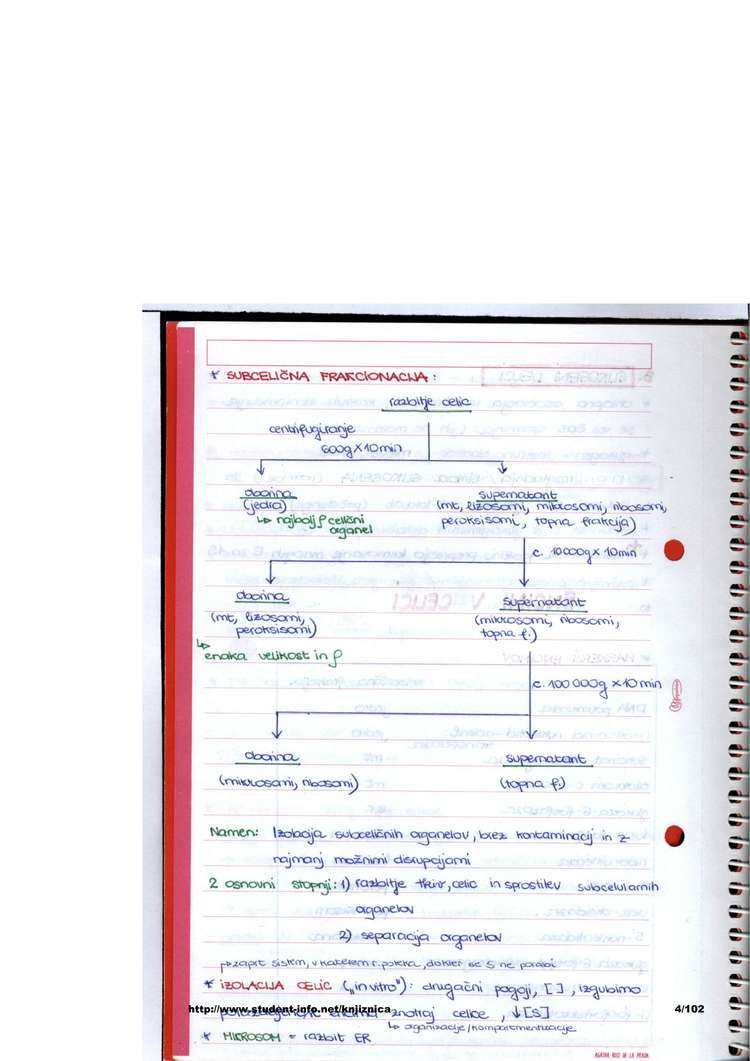 * SUBCELIČNA FRAKCIONACIJA:
razbitje celic
centrifugiranje
600g X 10min
oborina
supernatant
(jedra)
(mt, lizosomi, mikrosomi, ribosomi,
↳ najbolj ρ celični
organel
peroksisomi, topna frakcija)
c. 10000g x 10min
oborina
supernatant
(mt, lizosomi,
peroksisomi)
(mikrosomi, ribosomi,
topna f.)
↳
enaka velikost in ρ
c. 100 000g x 10 min
oborina
supernatant
(mikrosomi, ribosomi)
(topna f.)
Namen: Izolacija subceličnih organelov, brez kontaminacij in z
najmanj možnimi disrupcijami
2 osnovni stopnji: 1) razbitje tkiv, celic in sprostitev subcelularnih
organelov
2) separacija organelov
↳ zaprt sistem, v katerem r. poteka, dokler se S ne porabi
* IZOLACIJA CELIC („in vitro"): drugačni pogoji, [ ], izgubimo
znotraj celice, ↓[S]
http://www.student-info.net/knjiznica
4/102
↳ organizacije/kompartmentacije
* MIKROSOM = razbit ER
AGATHA RUIZ DE LA PRADA